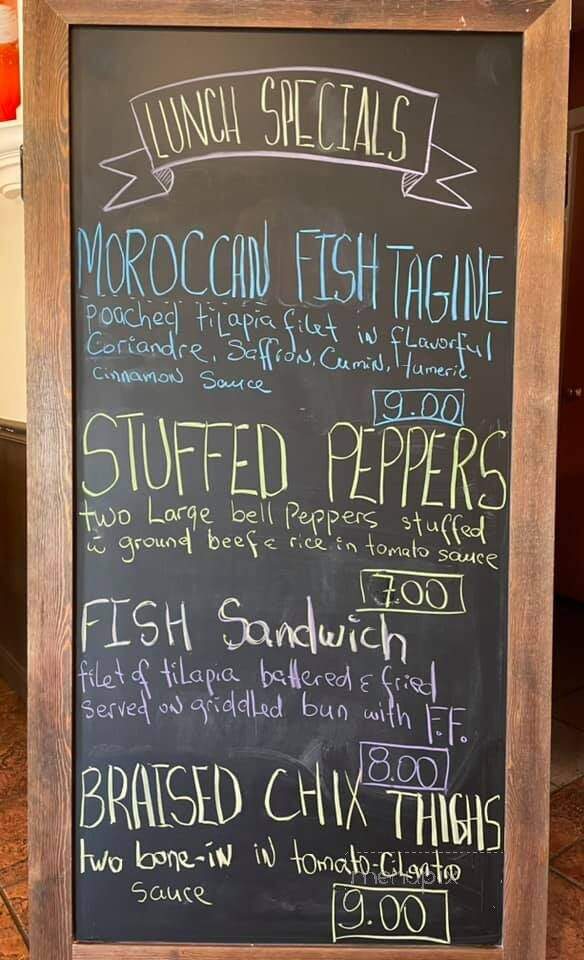 LUNCH SPECIALS
MOROCCAN FISH TAGINE
poached tilapia filet in flavorful
Coriandre, Saffron, Cumin, tumeric,
cinnamon Sauce
9.00
STUFFED PEPPERS
two Large bell Peppers stuffed
w ground beef & rice in tomato sauce
7.00
FISH Sandwich
filet of tilapia battered & fried
Served on griddled bun with F.F.
8.00
BRAISED CHIX THIGHS
two bone-in in tomato-Cilantro
menupix
sauce
9.00